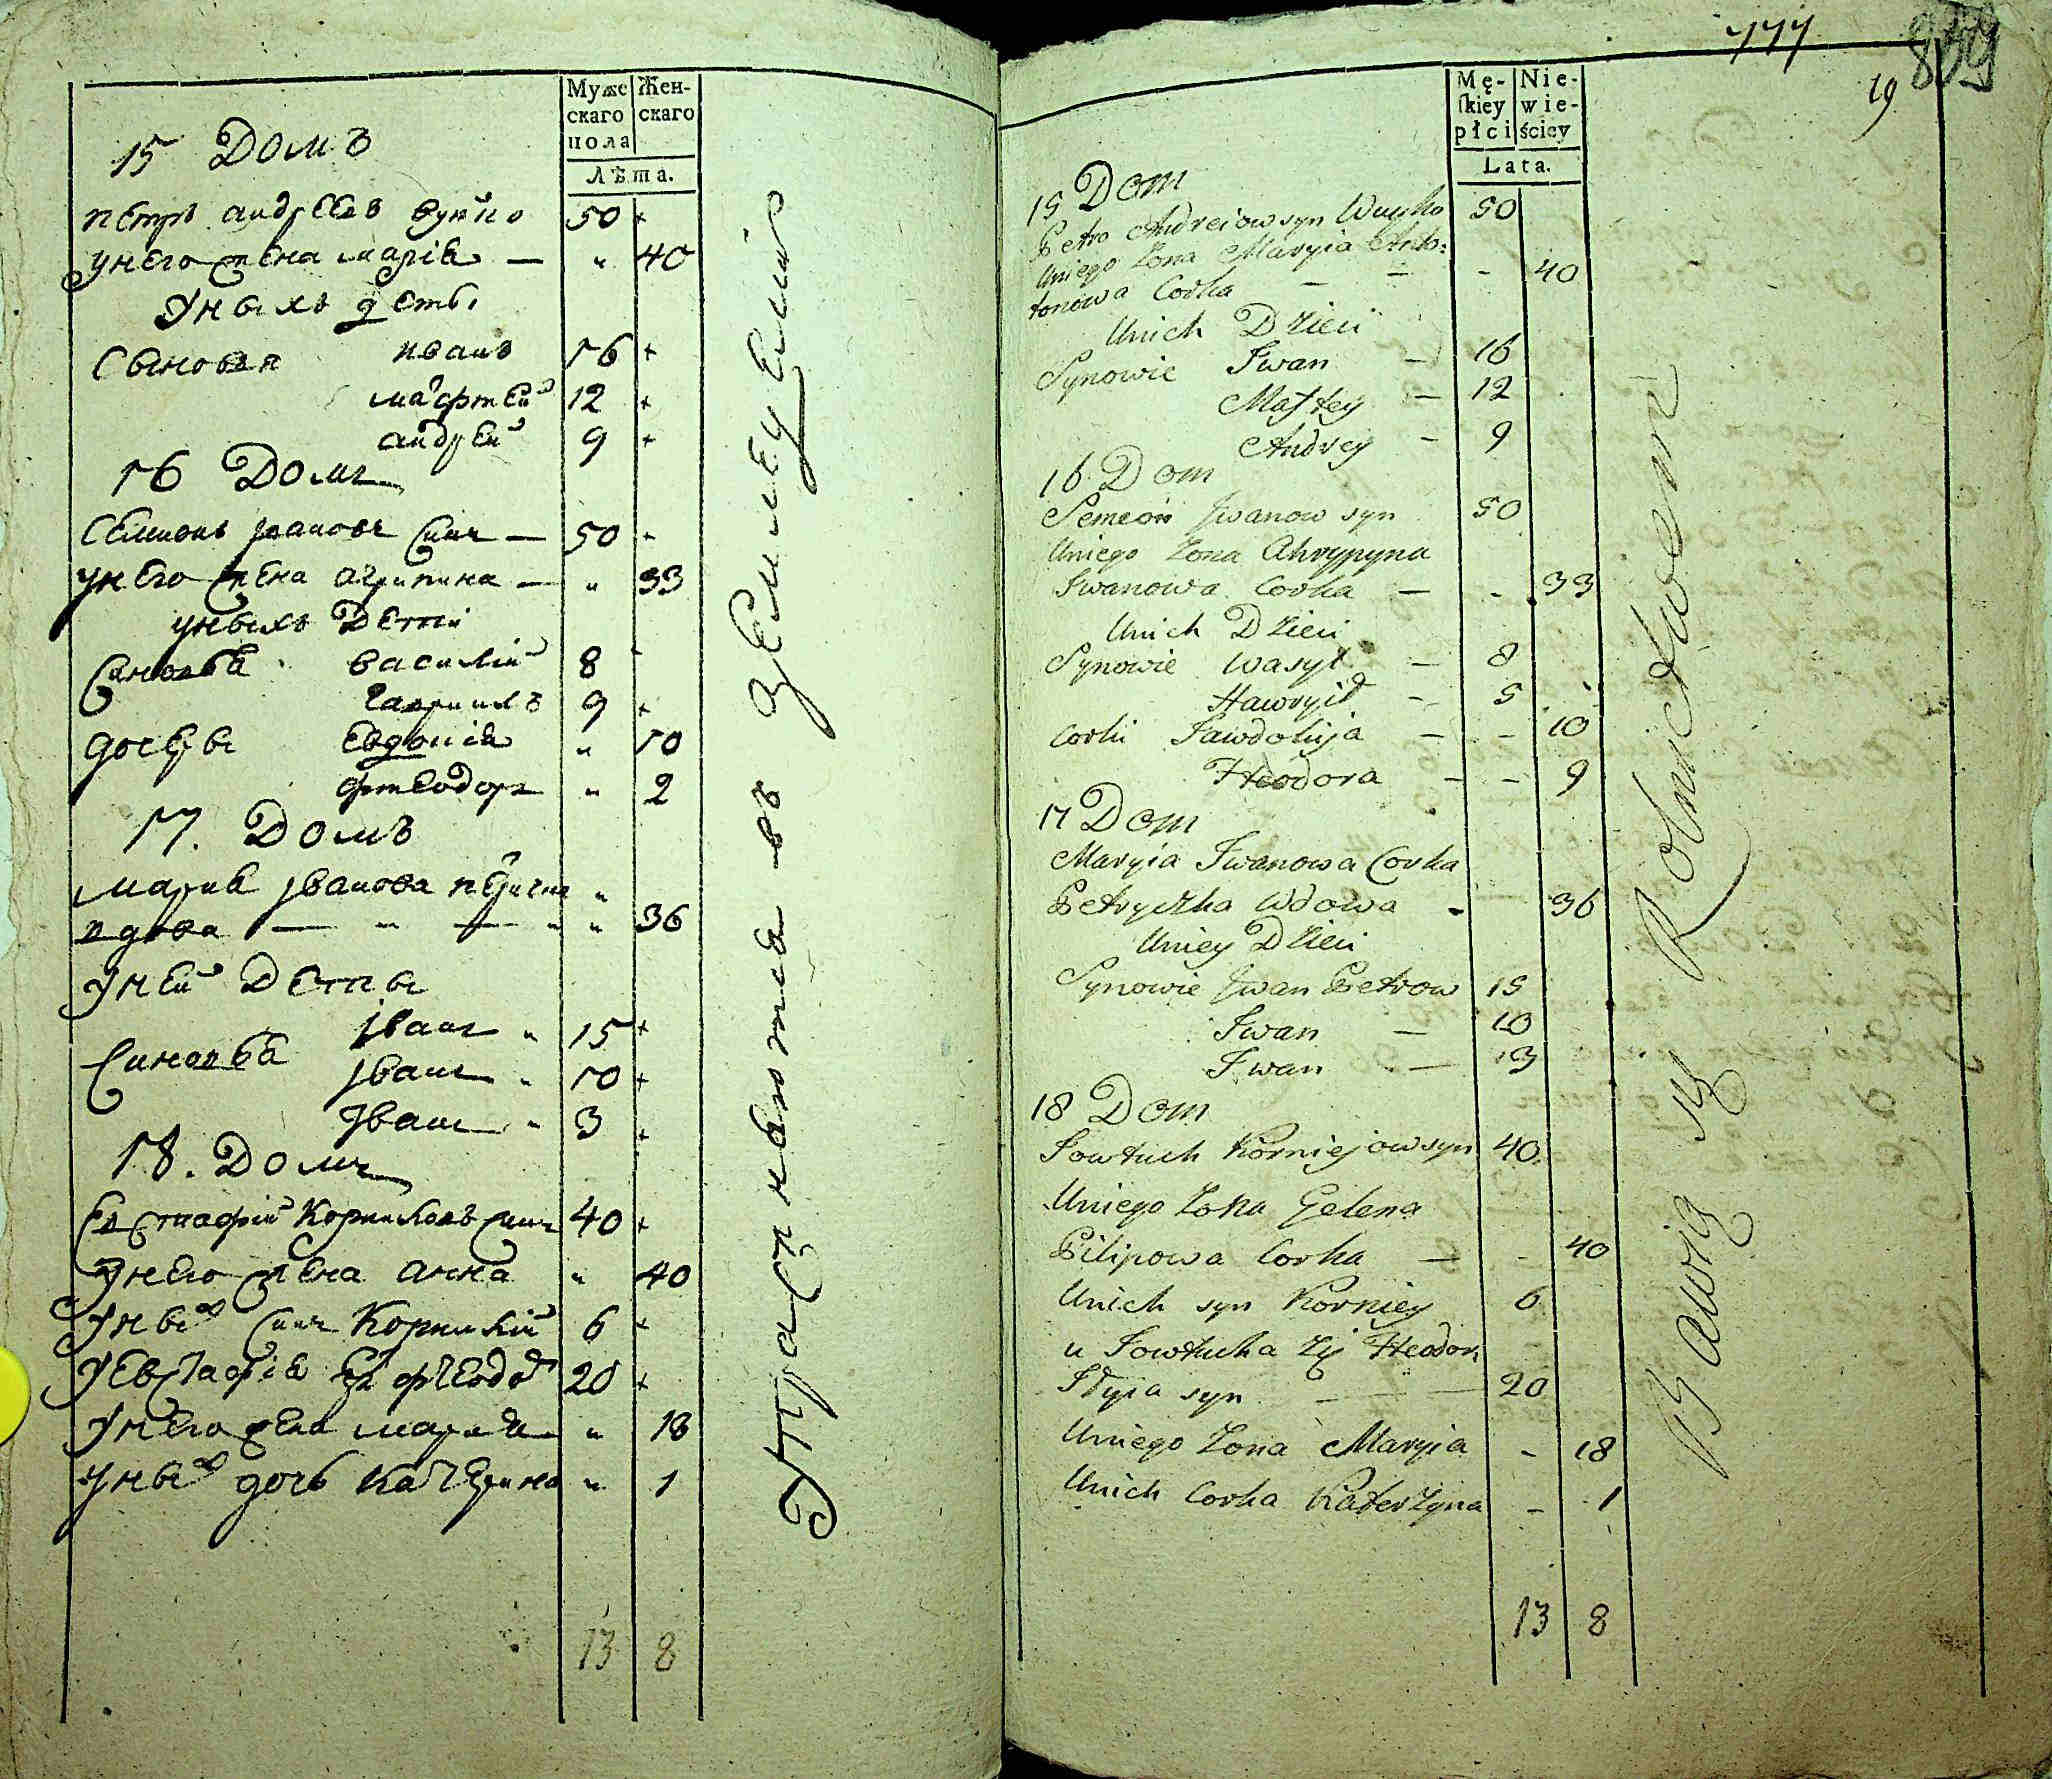 Муже
скаго
пола
Жен-
скаго
Лѣта.
15 Домъ
петръ андреевъ 50
унего жена марiя — „ 40
Уныхъ дети
Сыновя иванъ 16
мафтей 12
андрей 9
16 Домъ
Семионъ Iвановъ синъ — 50
унего жена агрипина — „ 33
уныхъ Дети
Синовья василiй 8
гавриилъ 9
дочери Евдокiя „ 10
фтеодора „ 2
17. Домъ
мария Iванова „
вдова — „ — „ „ 36
Уней Дети
Iванъ „ 15
Синовья Iванъ „ 10
Iванъ „ 3
18. Домъ
Евстафiй Корниловъ синъ 40
Унего жена анна „ 40
Уныхъ синъ Корнилiй 6
УЕвстафiя 20
Унего жена мария „ 18
Уныхъ дочь Катерина „ 1
13 8
Упражняются въ земледелии
777
859
19
Mę-
skiey
płci
Nie-
wie-
ściey
Lata.
15 Dom
Petro Andreiow syn Wuyko 50
Uniego Zona Maryia Anto:
tonowa Corka — — - 40
Unich Dzieci
Synowie Iwan — 16
Maftey — 12
Andrey - 9
16 Dom
Semeon Iwanow syn 50
Uniego Zona Ahrypyna
Iwanowa Corka — - 33
Unich Dzieci
Synowie Wasyl — 8
Hawrył - 5
Corki Jawdokija — - 10
Heodora — - 9
17 Dom
Maryia Iwanowa Corka
Petryczka Wdowa - 36
Uniey Dzieci
Synowie Iwan Petrow 15
Iwan — 10
Iwan — 13
18 Dom
Jowtuch Korniejow syn 40
Uniego Zona Gelena
Pilipowa Corka — - 40
Unich syn Korniey 6
u Jowtucha Zij Heodor
syn — — 20
Uniego Zona Maryia - 18
Unich Corka Katerzyna - 1
13 8
Bawią się Rolnictwem